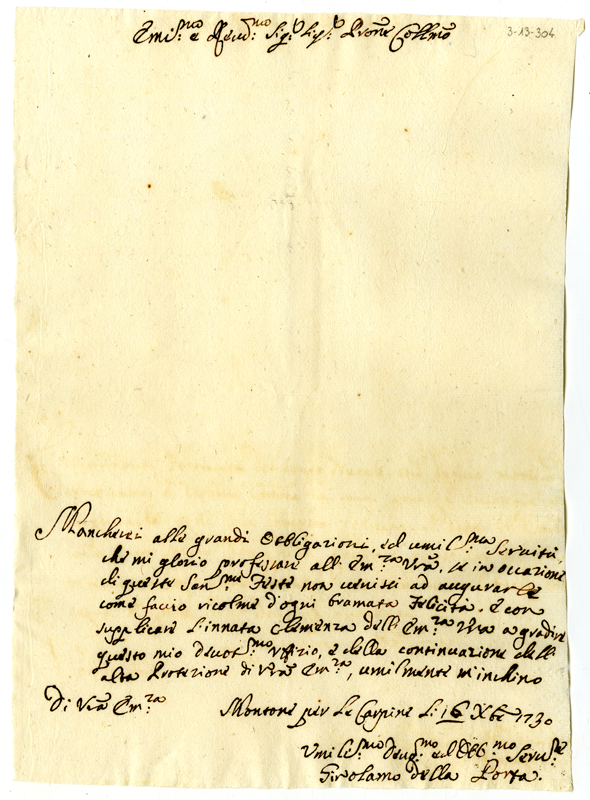 Emi.mo e Reud.mo Sig.r Sig.r Prone Collmo
3-13-304
Mancherei alle grandi Obbligazioni, ed umil.ma Seruitù,
che mi glorio professare all'Em.za Vra, se in occasione
di queste San.me Feste non uenissi ad augurarle
come faccio ricolme d'ogni bramata Felicità. e con
supplicare l'innata Clemenza dell'Em.za Vra a gradire
questo mio deuot.mo Vffizio, e della continuazione dell'
alta Protezione di Vra Em.za, umilmente m'inchino
Di Vra Em.za
Montone per Le Carpine Li 16 Xbe 1730
Vmilis.mo Deuo.mo ed Obb.mo Seru.re
Girolamo della Porta.